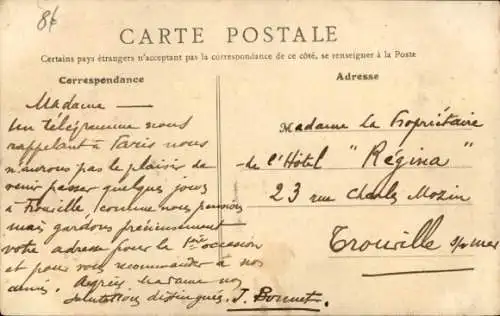 8f
CARTE POSTALE
Certains pays étrangers n'acceptant pas la correspondance de ce côté, se renseigner à la Poste
Correspondance
Adresse
Madame —
Un télégramme nous
rappelant à Paris nous
n'aurons pas le plaisir de
venir passer quelques jours
à Trouville comme nous pensions
mais gardons précieusement
votre adresse pour la 1ère occasion
et pour vous recommander à nos
amis. Agréez Madame nos
salutations distinguées. J. Bonnet.
Madame La Propriétaire
de l'Hôtel "Régina"
23 rue Charles Mozin
Trouville s/mer